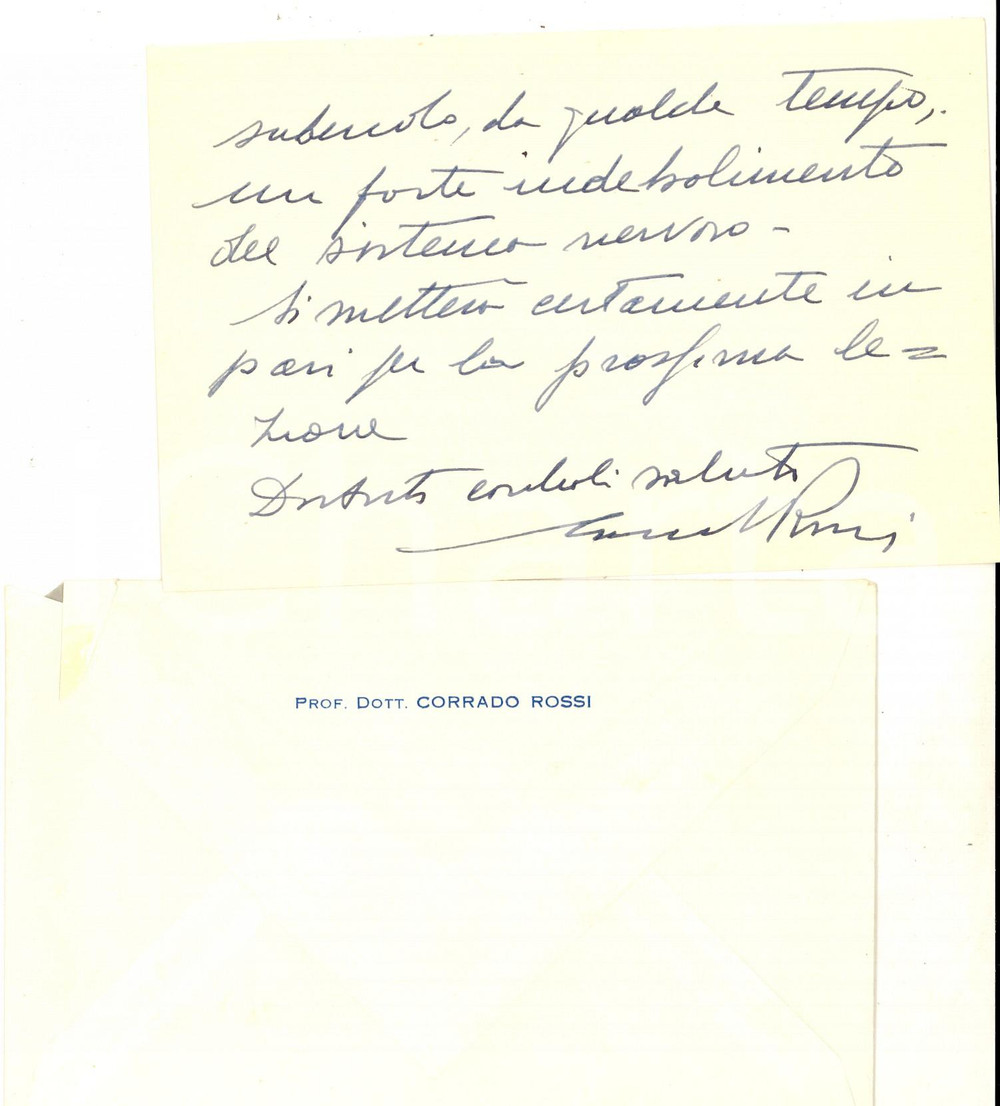 subendo, da qualche tempo,
un forte indebolimento
del sistema nervoso -
Si metterà certamente in
pari per la prossima le=
zione
Distinti cordiali saluti
Rossi
PROF. DOTT. CORRADO ROSSI